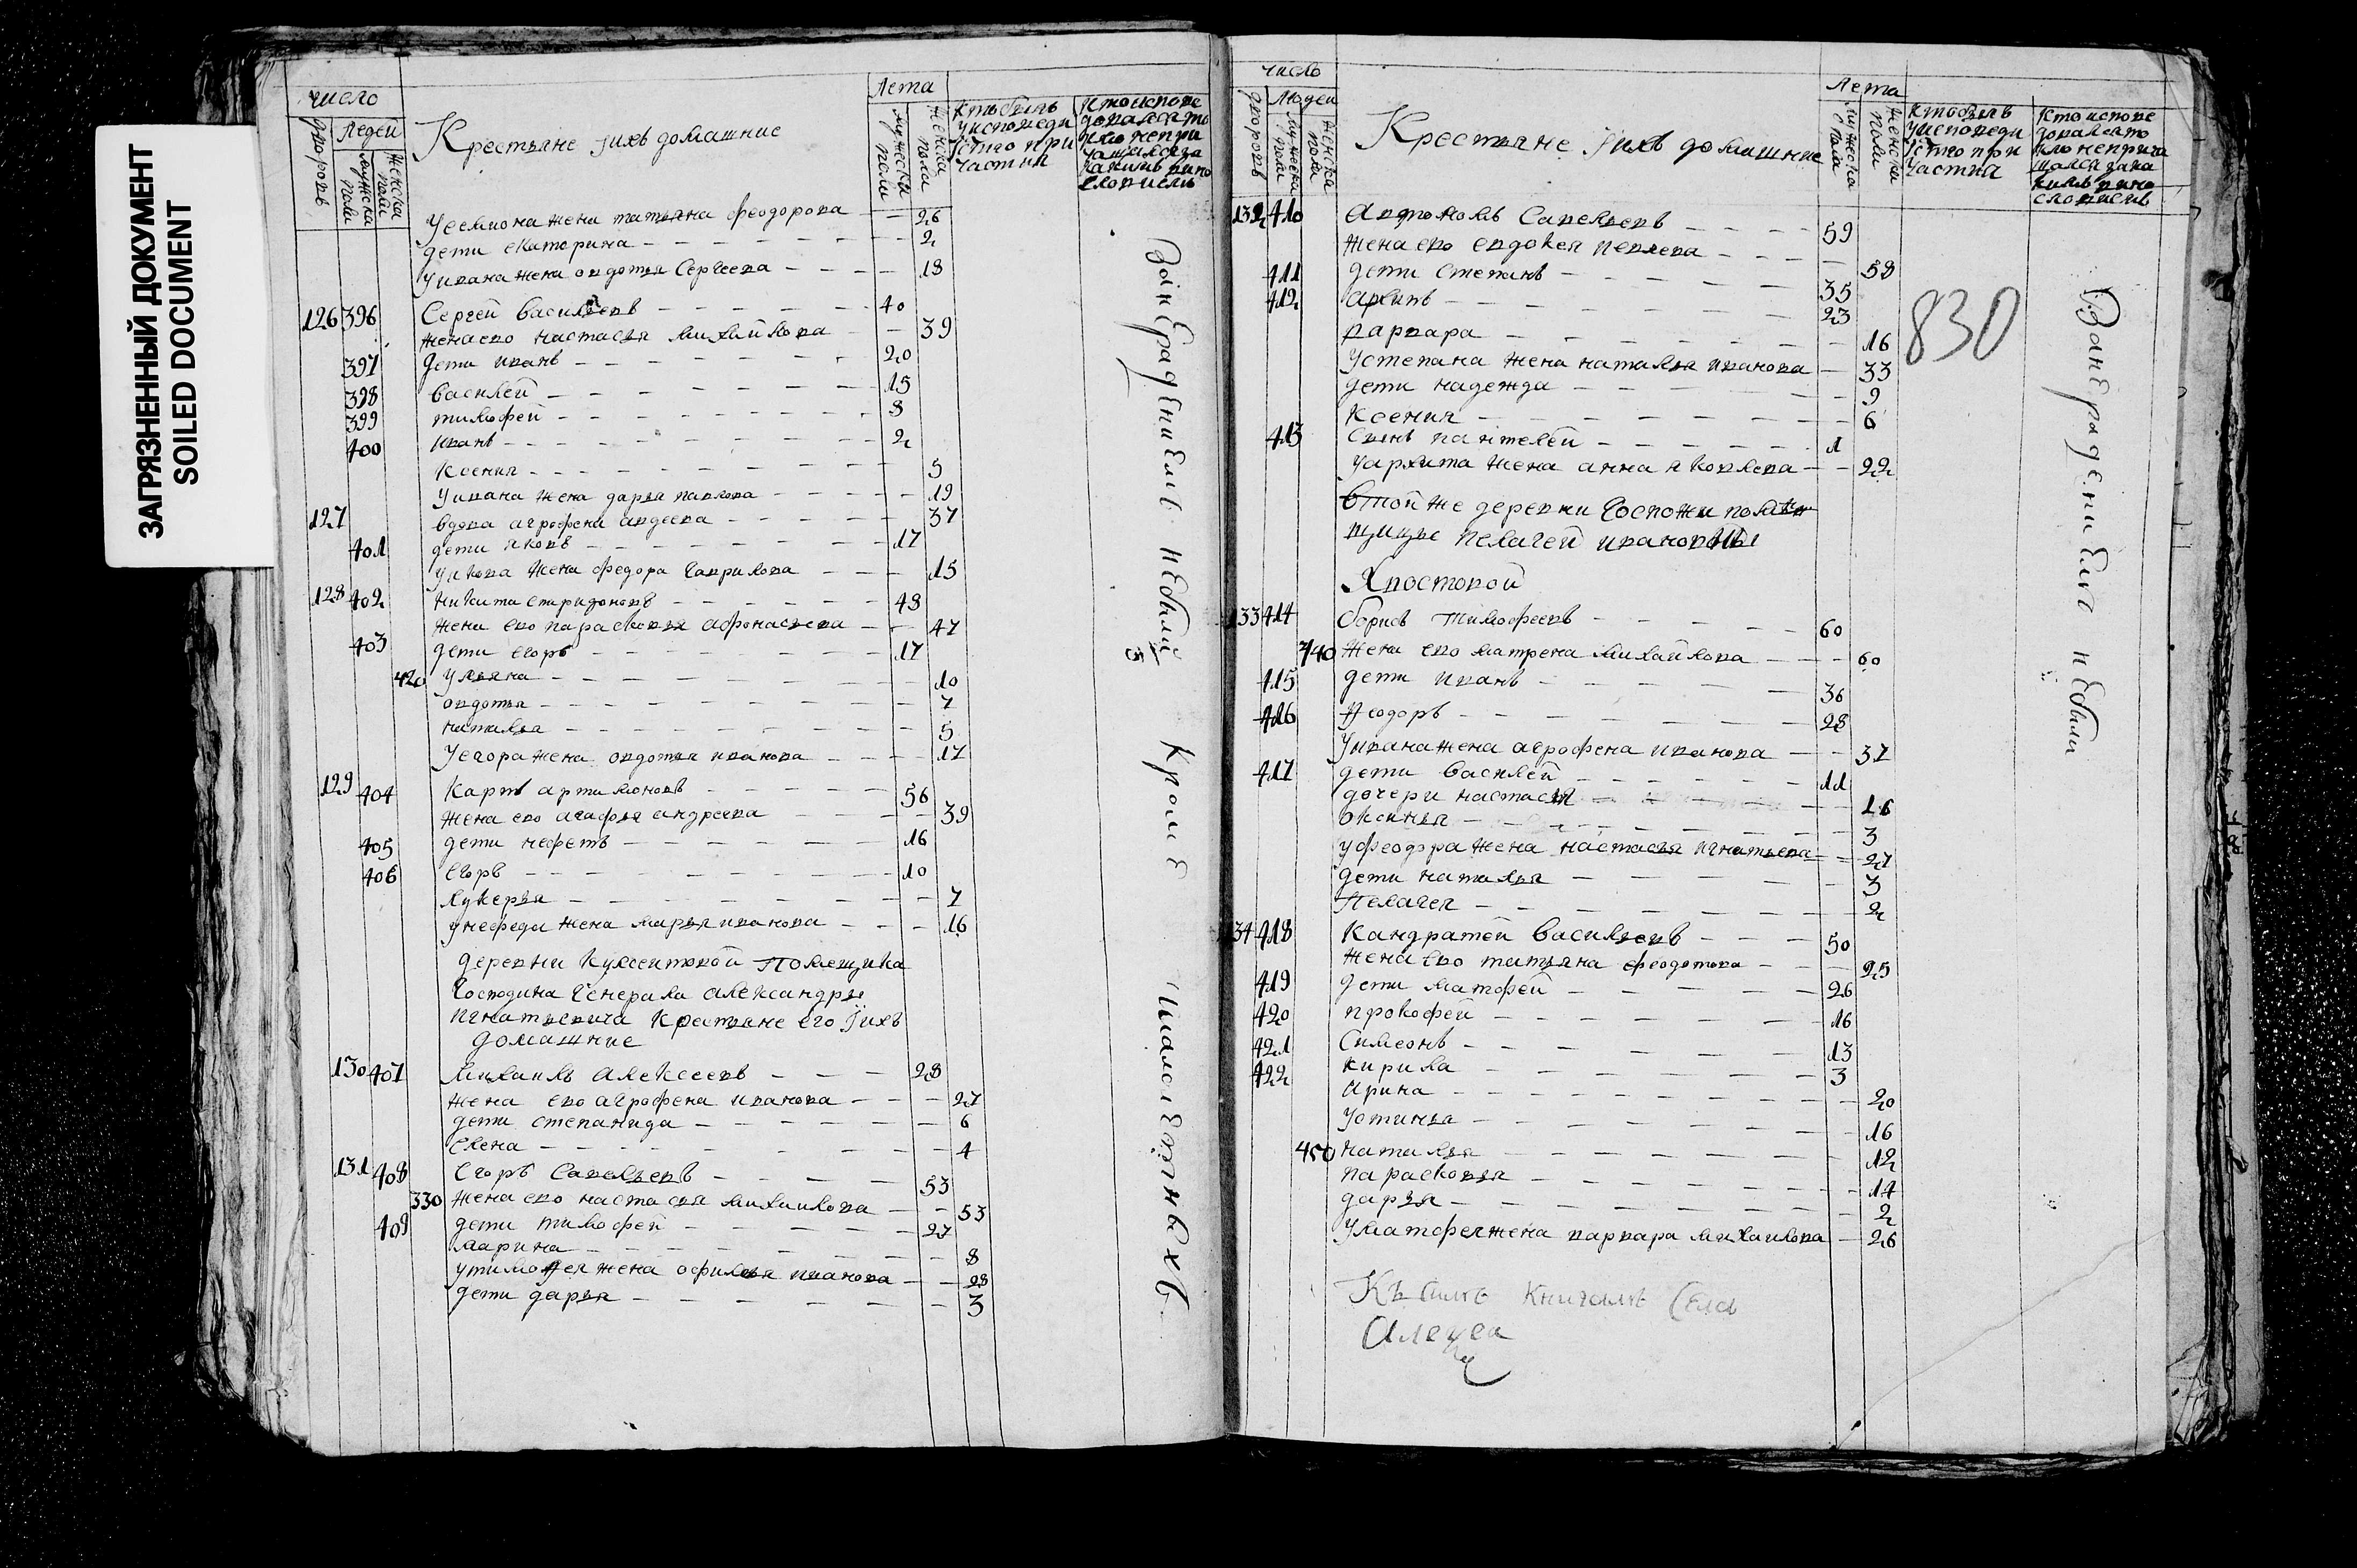 ЗАГРЯЗНЕННЫЙ ДОКУМЕНТ
SOILED DOCUMENT
число
Людей
дворовъ
мужеска пола
женска пола
Крестьяне ихъ домашние
Лета
мужеска пола
женска пола
Кто былъ
у исповеди
и с то при
частия
Кто испове
довался то
кмо непри
чащался за
какимъ вино
словиемъ
у семиона жена татьяна феодорова — 26
дети екатерина — 2
у ивана жена овдотья Сергеева — 18
126 396 Сергей васильевъ — 40
жена ево настасья михайлова — 39
397 дети иванъ — 20
398 василей — 15
399 тимофей — 8
400 иванъ — 2
Ксения — 5
у ивана жена дарья павлова — 19
127 вдова агрофена авдеева — 37
401 дети яковъ — 17
у якова жена федора гаврилова — 15
128 402 никита спиридоновъ — 48
жена ево парасковья афонасьева — 47
403 дети егоръ — 17
420 ульяна — 10
овдотья — 7
наталья — 5
у егора жена овдотья иванова — 17
129 404 Карпъ артамоновъ — 56
жена ево агафья андреева — 39
405 дети нефетъ — 16
406 егоръ — 10
лукерья — 7
у нефеда жена марья иванова — 16
деревни помещика
Господина Генерала александры
игнатьевича Крестьяне его ихъ
домашние
130 407 михаилъ алексеевъ — 28
жена ево агрофена иванова — 27
дети степанида — 6
елена — 4
131 408 егоръ савельевъ — 53
330 жена ево настасья михаилова — 53
409 дети тимофей — 27
марина — 8
у тимофея жена офимья иванова — 28
дети дарья — 3
за нерадениемъ небыли кроме малолетныхъ
число
Людей
дворовъ
мужеска пола
женска пола
Крестьяне ихъ домашние
Лета
мужеска пола
женска пола
Кто былъ
у исповеди
и с то при
частия
Кто испове
довался то
кмо неприча
щался зака
кимъ вино
словиемъ
132 410 Савельевъ — 59
жена ево евдокея — 58
411 дети степанъ — 35
412 архипъ — 23
варвара — 16
у степана жена наталья иванова — 33
дети надежда — 9
ксения — 6
413 сынъ пантелей — 1
у архипа жена анна яковлева — 22
830
в той же деревни Госпожи поме
щицы пелагеи ивановны
Хвостовой
133 414 борисъ тимофеевъ — 60
440 жена ево матрена михайлова — 60
415 дети иванъ — 36
416 феодоръ — 28
у ивана жена агрофена иванова — 37
417 дети василей — 11
дочери настасья — 16
оксинья — 3
у феодора жена настасья игнатьева — 27
дети наталья — 3
пелагея — 2
134 418 Кандратей васильевъ — 50
жена ево татьяна феодотова — 25
419 дети матфей — 26
420 прокофей — 16
421 симеонъ — 13
422 кирила — 3
арина — 20
устинья — 16
450 наталья — 12
парасковья — 14
дарья — 2
у матфея жена варвара михаилова — 26
за нерадениемъ небыли
Къ симъ книгамъ села